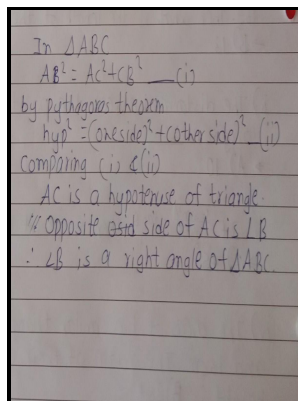 In △ABC
AB² = AC²+CB² —(i)
by pythagoras theorem
hyp² =(oneside)²+(other side)² —(ii)
Comparing (i) &(i)
AC is a hypotenuse of triangle.
∵ Opposite side of AC is ∠B
∴ ∠B is a right angle of △ABC.